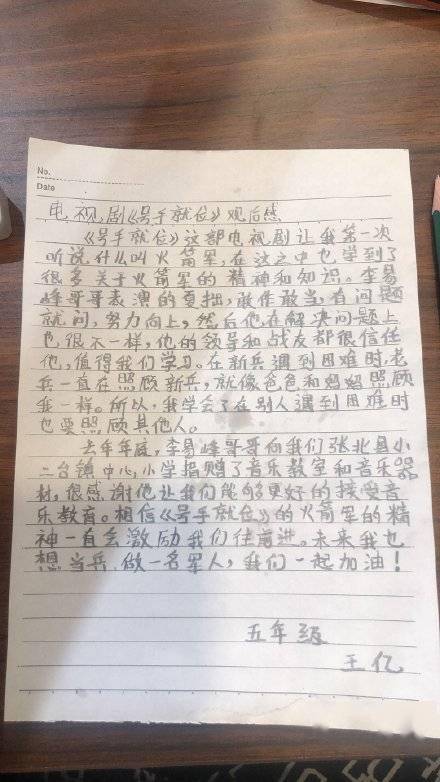 No.
Date
电视剧《号手就位》观后感
《号手就位》这部电视剧让我第一次
听说什么叫火箭军,在这之中也学到了
很多关于火箭军的精神和知识。李易
峰哥哥表演的夏拙,敢作敢当,有问题
就问,努力向上,然后他在解决问题上
也很不一样,他的领导和战友都很信任
他,值得我们学习。在新兵遇到困难时,老
兵一直在照顾新兵,就像爸爸和妈妈照顾
我一样。所以,我学会了在别人遇到困难时
也要照顾其他人。
去年年底,李易峰哥哥向我们张北县小
二台镇中心小学捐赠了音乐教室和音乐器
材,很感谢他让我们能够更好的接受音
乐教育。相信《号手就位》的火箭军的精
神一直会激励我们往前进。未来我也
想当兵,做一名军人,我们一起加油!
五年级
王亿